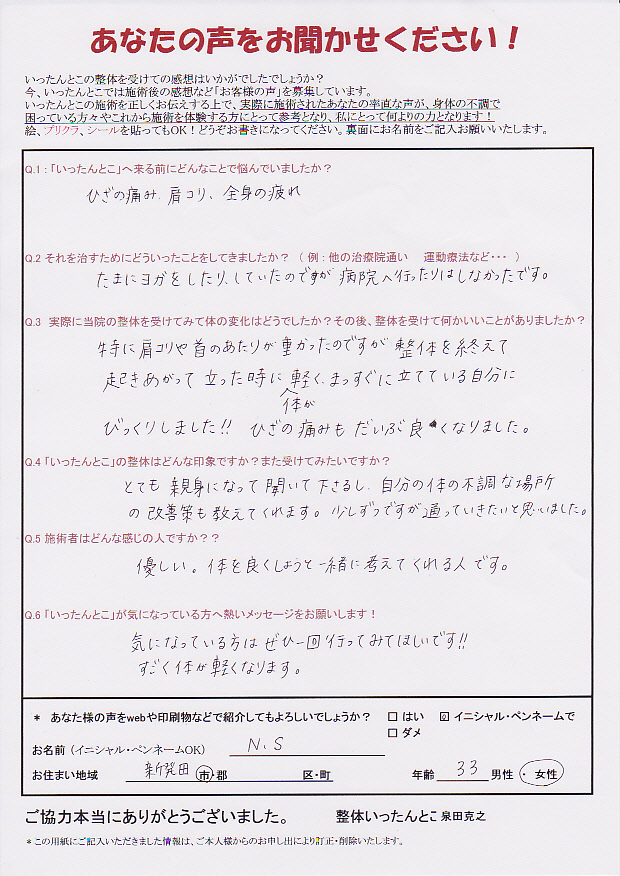 あなたの声をお聞かせください！
いったんとこの整体を受けての感想はいかがでしたでしょうか？
今、いったんとこでは施術後の感想など「お客様の声」を募集しています。
いったんとこの施術を正しくお伝えする上で、実際に施術されたあなたの率直な声が、身体の不調で
困っている方々やこれから施術を体験する方にとって参考となり、私にとって何よりの力となります！
絵、プリクラ、シールを貼ってもOK！どうぞお書きになってください。裏面にお名前をご記入お願いいたします。
Q.1：「いったんとこ」へ来る前にどんなことで悩んでいましたか？
ひざの痛み、肩コリ、全身の疲れ
Q.2 それを治すためにどういったことをしてきましたか？（ 例：他の治療院通い　運動療法など・・・ ）
たまにヨガをしたり、していたのですが 病院へ行ったりはしなかったです。
Q.3 実際に当院の整体を受けてみて体の変化はどうでしたか？その後、整体を受けて何かいいことがありましたか？
特に肩コリや首のあたりが重かったのですが 整体を終えて
起きあがって 立った時に 軽く、まっすぐに立てている自分に
体が
びっくりしました!! ひざの痛みも だいぶ良くなりました。
Q.4「いったんとこ」の整体はどんな印象ですか？また受けてみたいですか？
とても 親身になって 聞いて下さるし、自分の体の不調な場所
の 改善策も教えてくれます。少しずつですが通っていきたいと思いました。
Q.5 施術者はどんな感じの人ですか？？
優しい。体を良くしようと一緒に考えてくれる人です。
Q.6「いったんとこ」が気になっている方へ熱いメッセージをお願いします！
気になっている方は ぜひ一回行ってみてほしいです!!
すごく体が軽くなります。
＊ あなた様の声をwebや印刷物などで紹介してもよろしいでしょうか？ □ はい ☑ イニシャル・ペンネームで
□ ダメ
お名前（イニシャル・ペンネームOK） N.S
お住まい地域 新発田 市・郡 区・町 年齢 33 男性 ・ 女性
ご協力本当にありがとうございました。 整体いったんとこ 泉田克之
＊この用紙にご記入いただきました情報は、ご本人様からのお申し出により訂正・削除いたします。